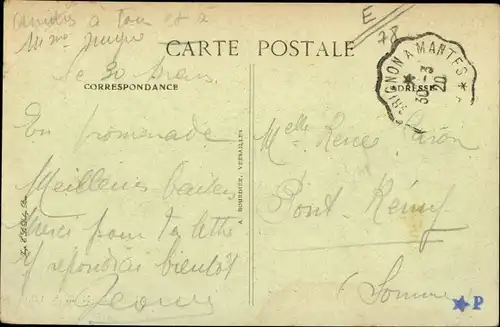 Amitiés à tous et à
Mme
E
78
CARTE POSTALE
Le 30 Mars
CORRESPONDANCE
ADRESSE
GRIGNON A MANTES
30 - 3
20
En promenade
Meilleurs baisers
Merci pour ta lettre
Y répondrai bientôt
A. BOURDIER, VERSAILLES
Melle Renée Caron
Pont-Rémy
(Somme)
P